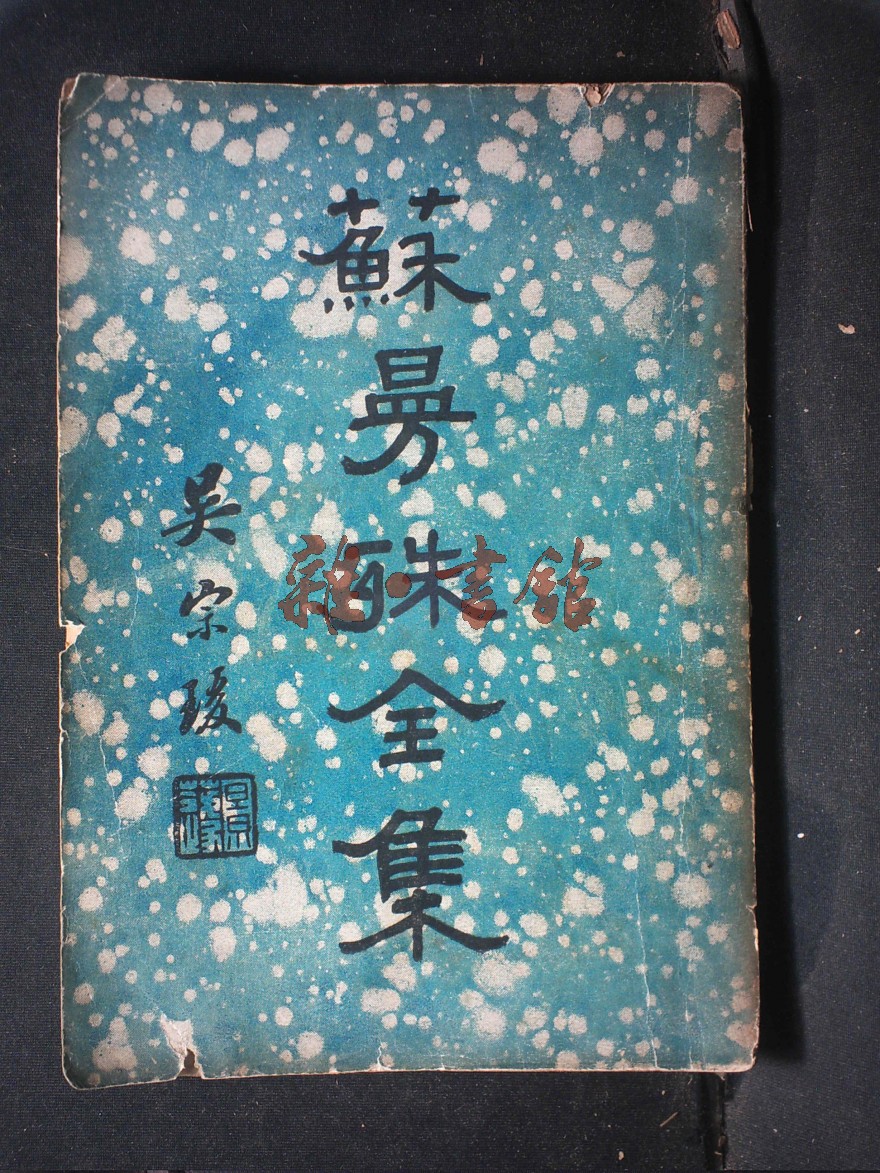 蘇曼殊全集
吳宗瑗
雜·書館